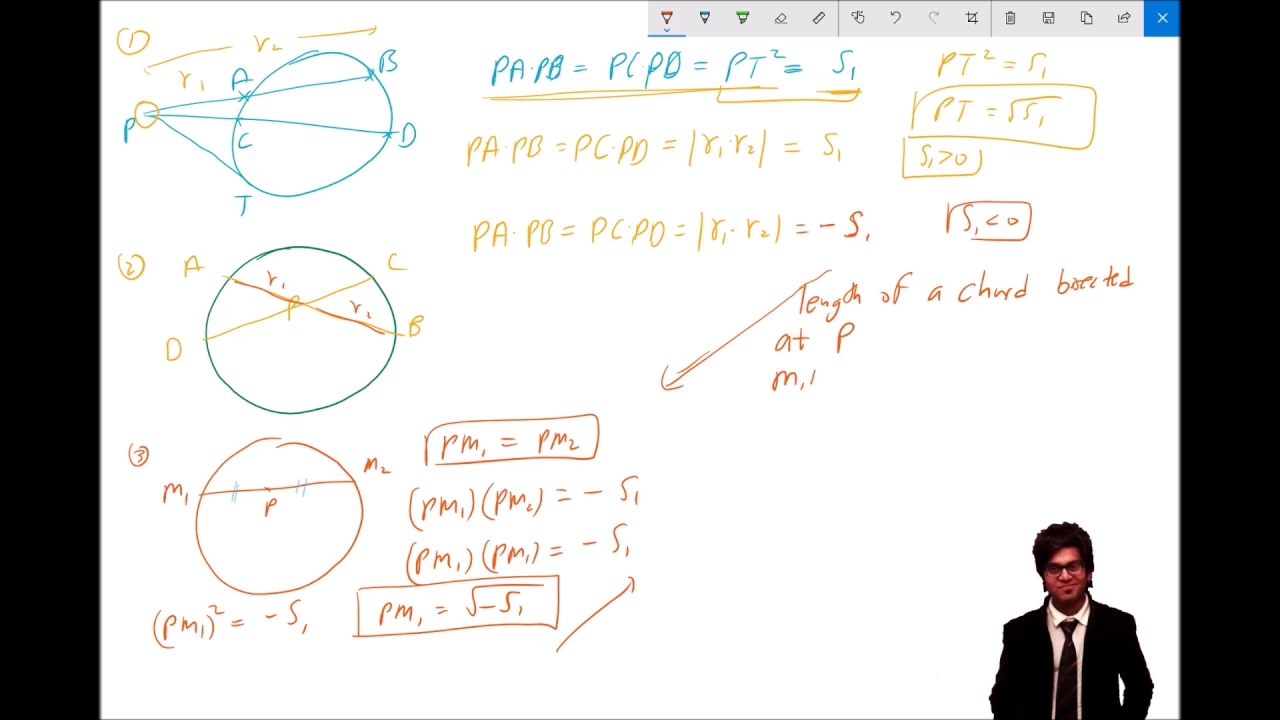 ①
r₁ r₂
P A B
C D
T
PA·PB = PC·PD = PT² = S₁
PT² = S₁
PT = √S₁
S₁>0
PA·PB = PC·PD = |r₁·r₂| = S₁
PA·PB = PC·PD = |r₁·r₂| = - S₁
S₁<0
②
A C
r₁
P r₂
D B
length of a chord bisected
at P
m,1
③
M₁ P M₂
PM₁ = PM₂
(PM₁)(PM₂) = - S₁
(PM₁)(PM₁) = - S₁
(PM₁)² = - S₁
PM₁ = √-S₁